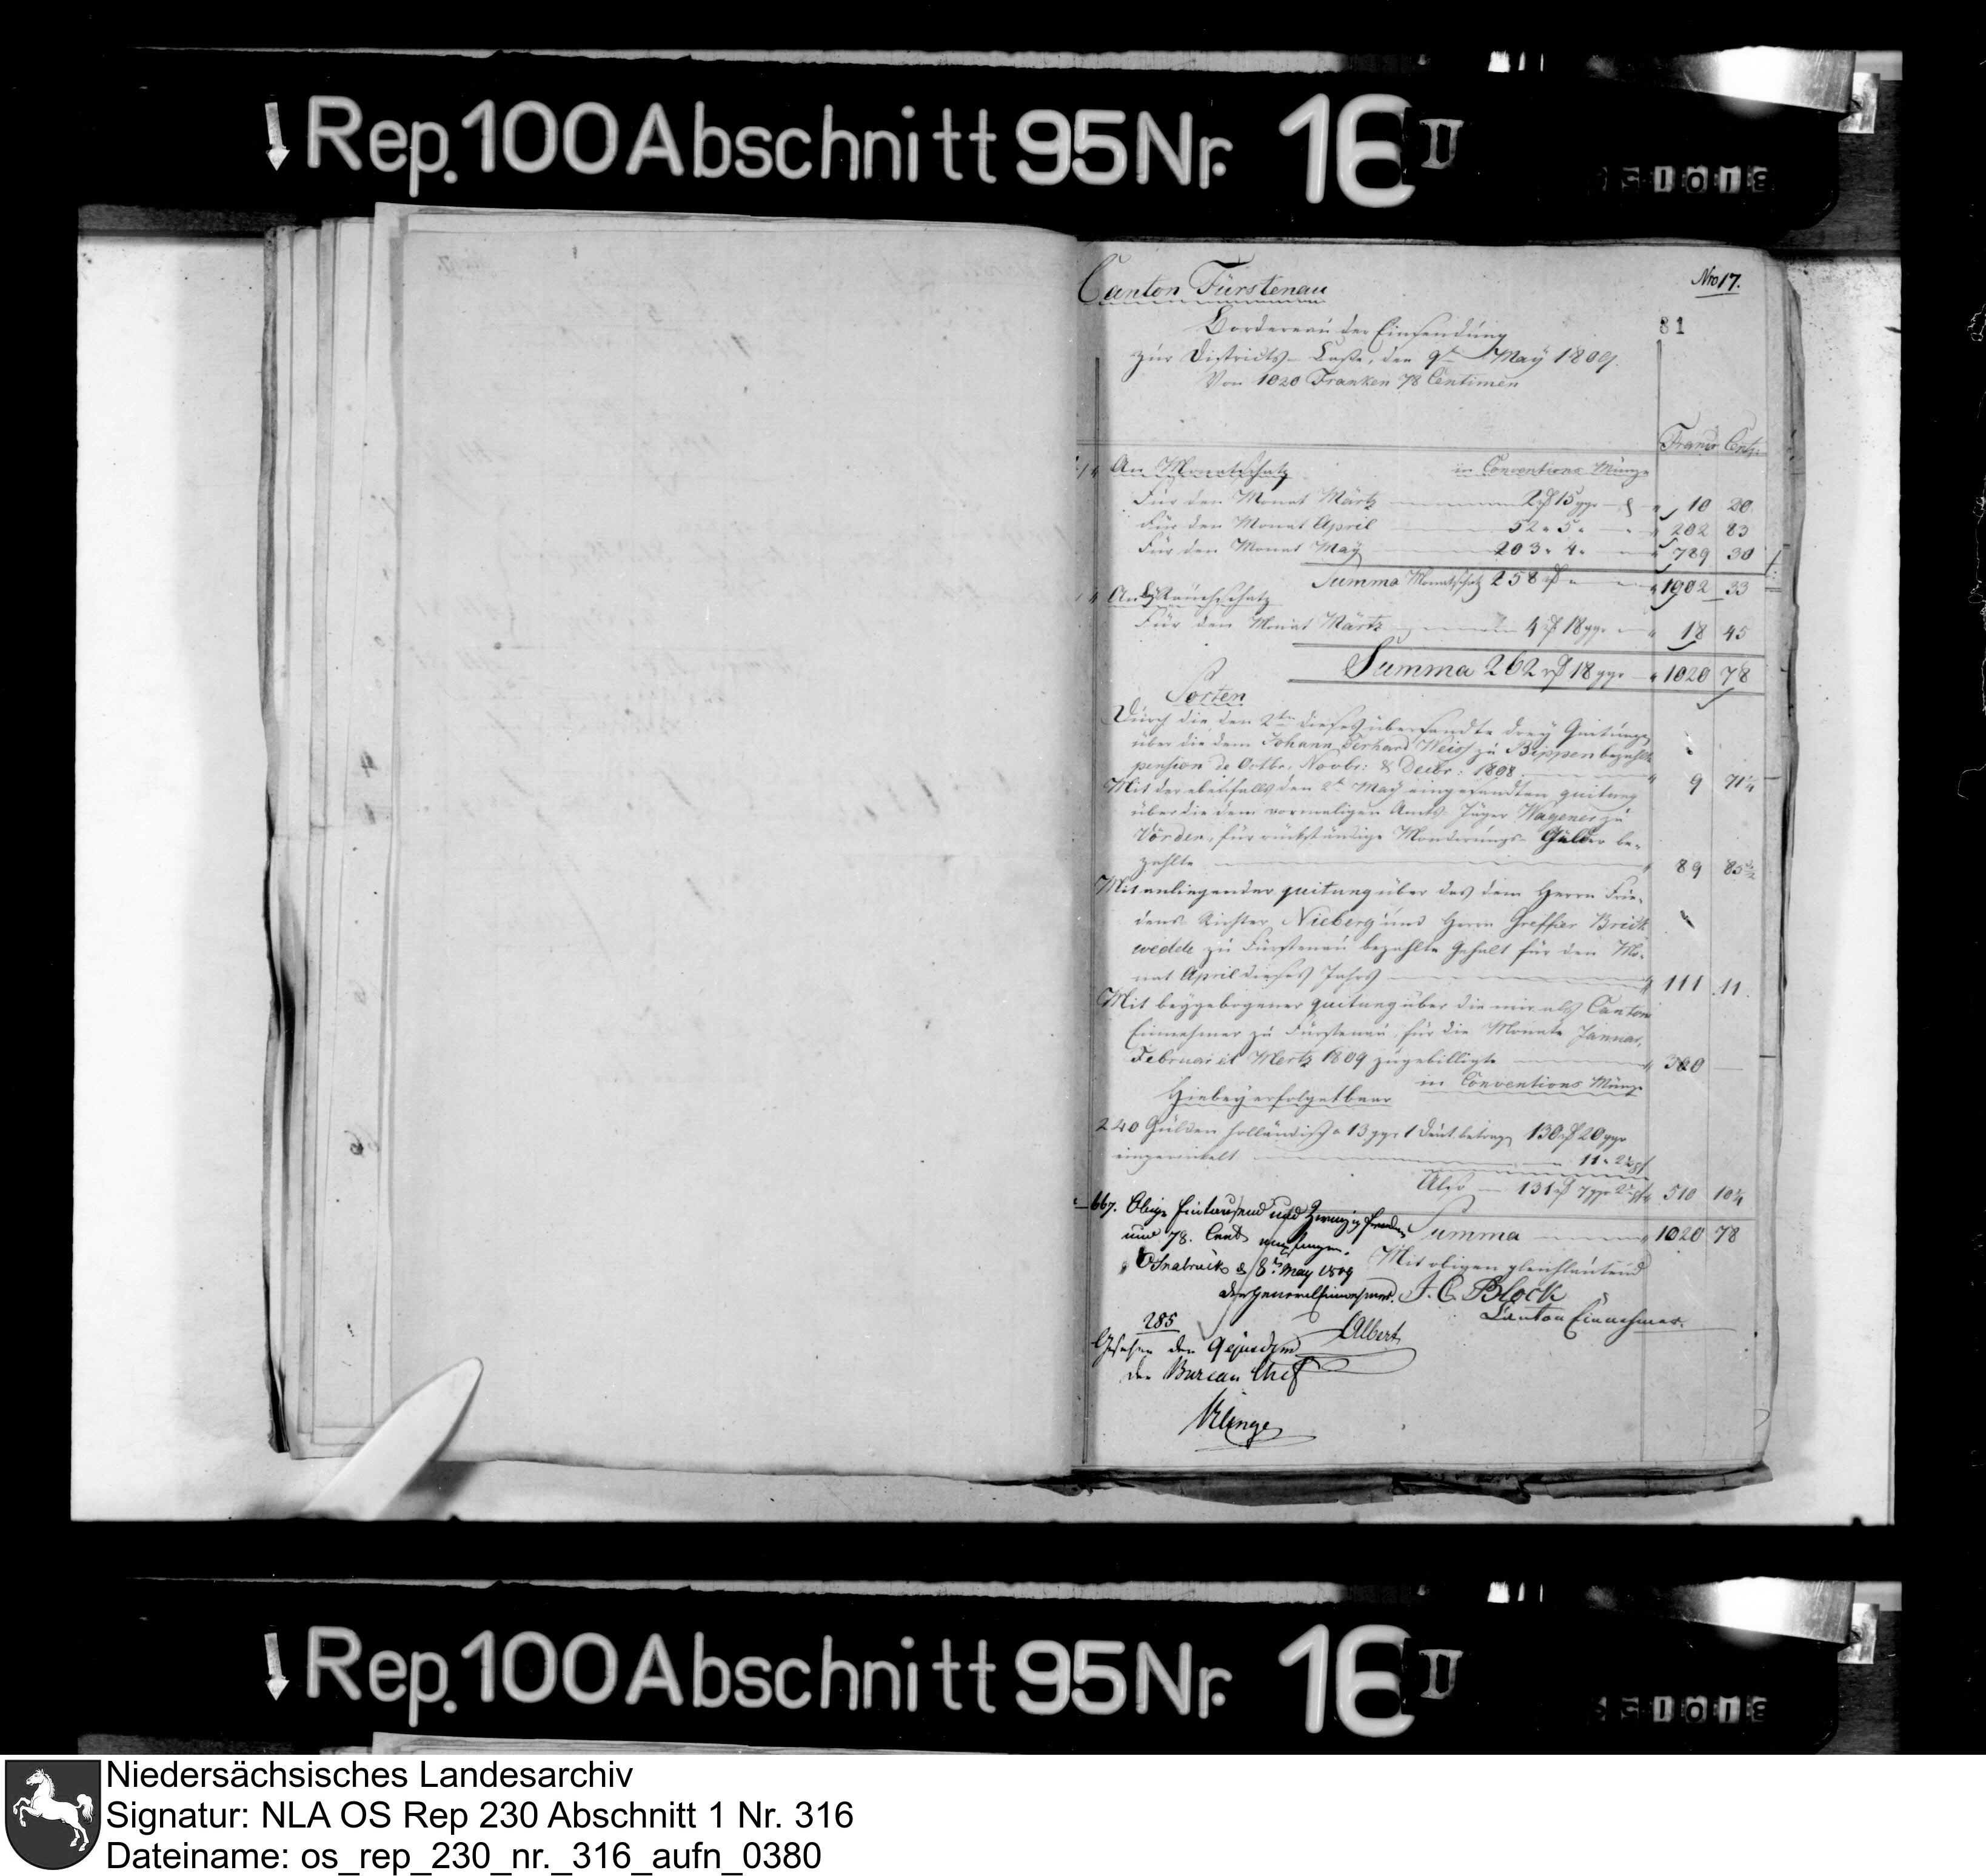 Rep. 100 Abschnitt 95 Nr. 16 II
Canton Fürstenau
Nro 17.
81
Bordereau der Einsendung
zur Districts-Casse, den 9ten May 1809.
Von 1020 Franken 78 Centimen
Francs Cents
An Monatschatz in Conventions Münze
Für den Monat Märtz 2 rthl 15 ggr 10 20
Für den Monat April 52 " 5 " 202 83
Für den Monat May 203 " 4 " 789 30
Summa Monatschatz 258 rthl 1002 33
An Rauchschatz
Für den Monat Märtz 4 rthl 18 ggr 18 45
Summa 262 rthl 18 ggr 1020 78
Sorten
Durch die, den 2ten dieses übersandte drey Quitungen
über die dem Johann Gerhard Weiss zu Bippen bezahlte
pension de Octbr. Novbr. & Decbr: 1808 9 71 1/4
Mit der ebenfalls den 2ten May eingesandten quitung
über die dem vormaligen Amts Jäger Wagener zu
Vörden, für rückständige Mondirungs-Gelder be-
zahlte 89 85 1/2
Mit anliegender quitung über das dem Herrn Frie-
dens Richter Nieberg und Herrn Greffier Breit
wedde zu Fürstenau bezahlte Gehalt für den Mo-
nat April dieses Jahrs 111 11
Mit beygebogener quitung über die mir als Canton
Einnehmer zu Fürstenau, für die Monate Januar,
Februar et Mertz 1809 zugebilligte 300
Hiebey erfolget baar in Conventions Münze
240 Gulden holländisch a 13 ggr 1 Deut. betragen 130 rthl 20 ggr
eingewickelt 11 " 2
Also 131 rthl 7 ggr 510 10 1/4
Summa 1020 78
667. Obige Eintausend und Zwanzig Franken
und 78. Cent empfangen.
Osnabrück d 8ten May 1809
der General Einnehmer.
Albert
Mit obigen gleichlautend
J. C. Block
Canton Einnehmer.
285
Gesehen den 9 ejusdem
der Bureau Chef
Klinge
Rep. 100 Abschnitt 95 Nr. 16 II
Niedersächsisches Landesarchiv
Signatur: NLA OS Rep 230 Abschnitt 1 Nr. 316
Dateiname: os_rep_230_nr._316_aufn_0380